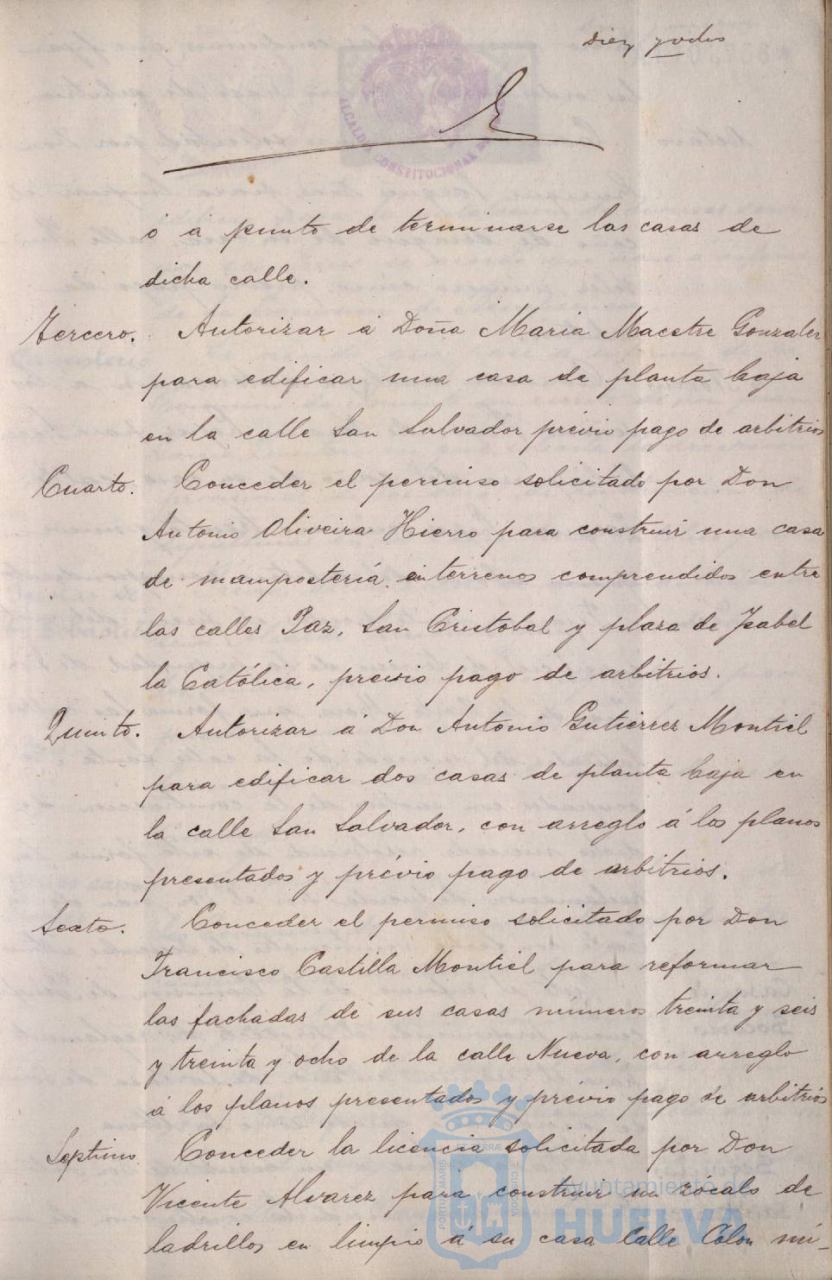 Diez y ocho
ALCALDIA CONSTITUCIONAL
ó á punto de terminarse las casas de
dicha calle.
Tercero. Autorizar á Doña Maria Maestre Gonzalez
para edificar una casa de planta baja
en la calle San Salvador prévio pago de arbitrios
Cuarto. Conceder el permiso solicitado por Don
Antonio Oliveira Hierro para construir una casa
de mampostería en terrenos comprendidos entre
las calles Paz, San Cristobal y plaza de Isabel
la Católica, prévio pago de arbitrios.
Quinto. Autorizar á Don Antonio Gutiérrez Montiel
para edificar dos casas de planta baja en
la calle San Salvador, con arreglo á los planos
presentados y prévio pago de arbitrios.
Sexto. Conceder el permiso solicitado por Don
Francisco Castilla Montiel para reformar
las fachadas de sus casas números treinta y seis
y treinta y ocho de la calle Nueva, con arreglo
á los planos presentados y prévio pago de arbitrios
Septimo Conceder la licencia solicitada por Don
Vicente Alvarez para construir un zócalo de
ladrillos en limpio á su casa Calle Colon nú-
ayuntamiento de
HUELVA